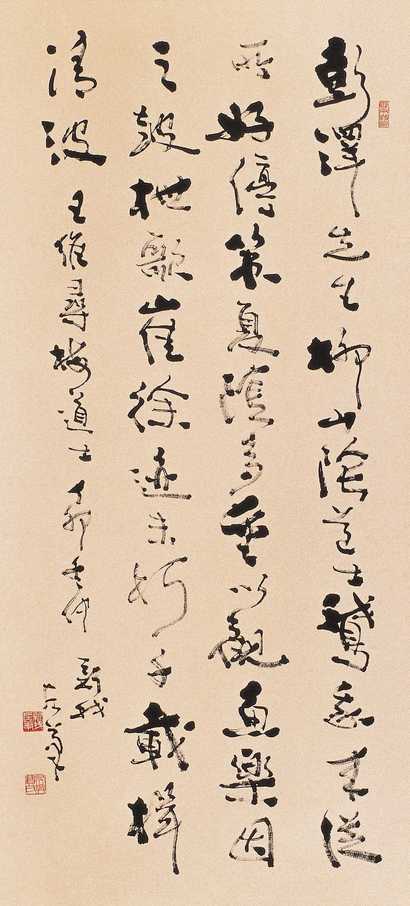 彭澤先生柳山陰道士鵝我来從
所好停策夏陰多重以觀魚樂因
之鼓枻歌崔徐迹未朽千載揖
清波 王維尋梅道士